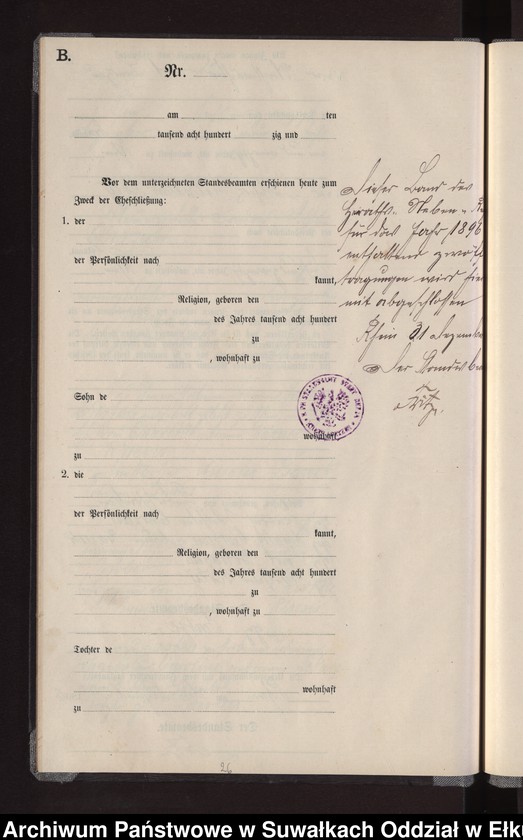 B.
Nr.
am ten
tausend acht hundert zig und
Vor dem unterzeichneten Standesbeamten erschienen heute zum
Zweck der Eheschließung:
1. der
der Persönlichkeit nach
kannt,
Religion, geboren den
des Jahres tausend acht hundert
zu
, wohnhaft zu
Sohn de
wohnhaft
zu
2. die
der Persönlichkeit nach
kannt,
Religion, geboren den
des Jahres tausend acht hundert
zu
, wohnhaft zu
Tochter de
wohnhaft
zu
Dieser Band des
Heiraths- Neben-Re
für das Jahr 1896
enthaltend zwölf
tragungen wird hier
mit abgeschlossen
Rhein 31 Dezember
Der Standesbea
26
Archiwum Państwowe w Suwałkach Oddział w Ełku